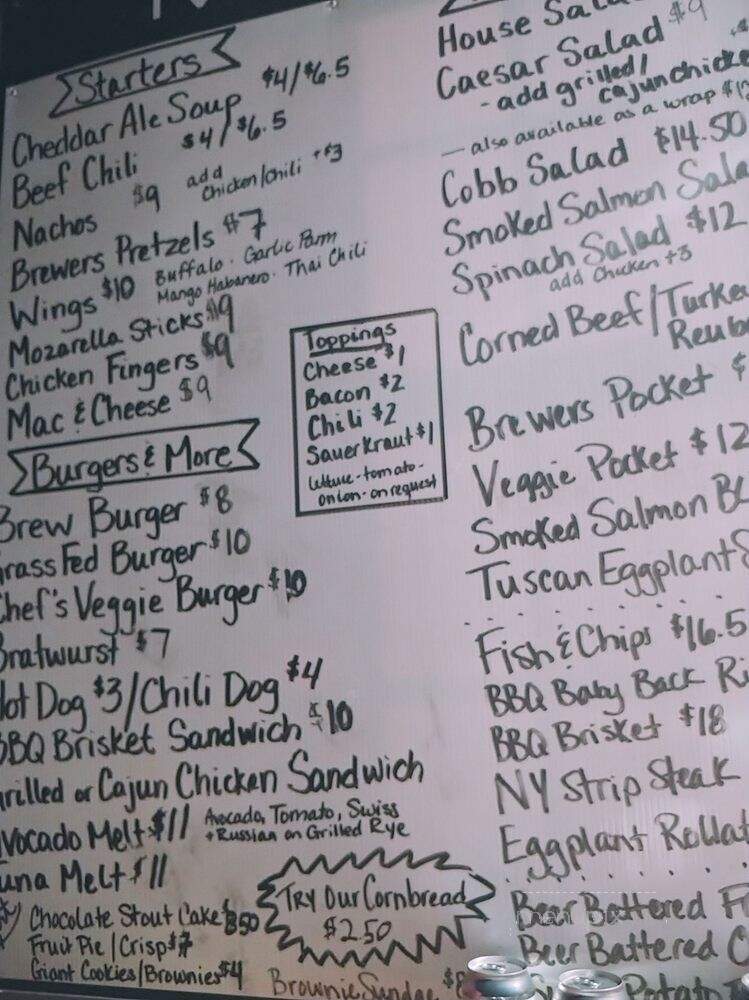 Starters
Cheddar Ale Soup $4/$6.5
Beef Chili $4/$6.5
Nachos $9 add Chicken/chili +$3
Brewers Pretzels $7
Wings $10 Buffalo · Garlic Parm
Mango Habanero · Thai Chili
Mozarella Sticks $9
Chicken Fingers $9
Mac & Cheese $9
Toppings
Cheese $1
Bacon $2
Chili $2
Sauerkraut $1
lettuce - tomato -
onion - on request
Burgers & More
Brew Burger $8
rass Fed Burger $10
hef's Veggie Burger $10
ratwurst $7
ot Dog $3/Chili Dog $4
BQ Brisket Sandwich $10
rilled or Cajun Chicken Sandwich
vocado Melt $11 Avocado, Tomato, Swiss
+ Russian on Grilled Rye
una Melt $11
Chocolate Stout Cake $8.50
Fruit Pie | Crisp $7
Giant Cookies/Brownies $4
TRY Our Cornbread
$2.50
Brownie Sundae $8
House Sala
Caesar Salad $9
- add grilled/
cajun chicke
- also available as a wrap $12
Cobb Salad $14.50
Smoked Salmon Sala
Spinach Salad $12
add Chicken +3
Corned Beef/Turke
Reub
Brewers Pocket $
Veggie Pocket $12
Smoked Salmon BL
Tuscan Eggplant
Fish & Chips $16.5
BBQ Baby Back Ri
BBQ Brisket $18
NY Strip Steak
Eggplant Rollat
Beer Battered Fr
Beer Battered
Potato